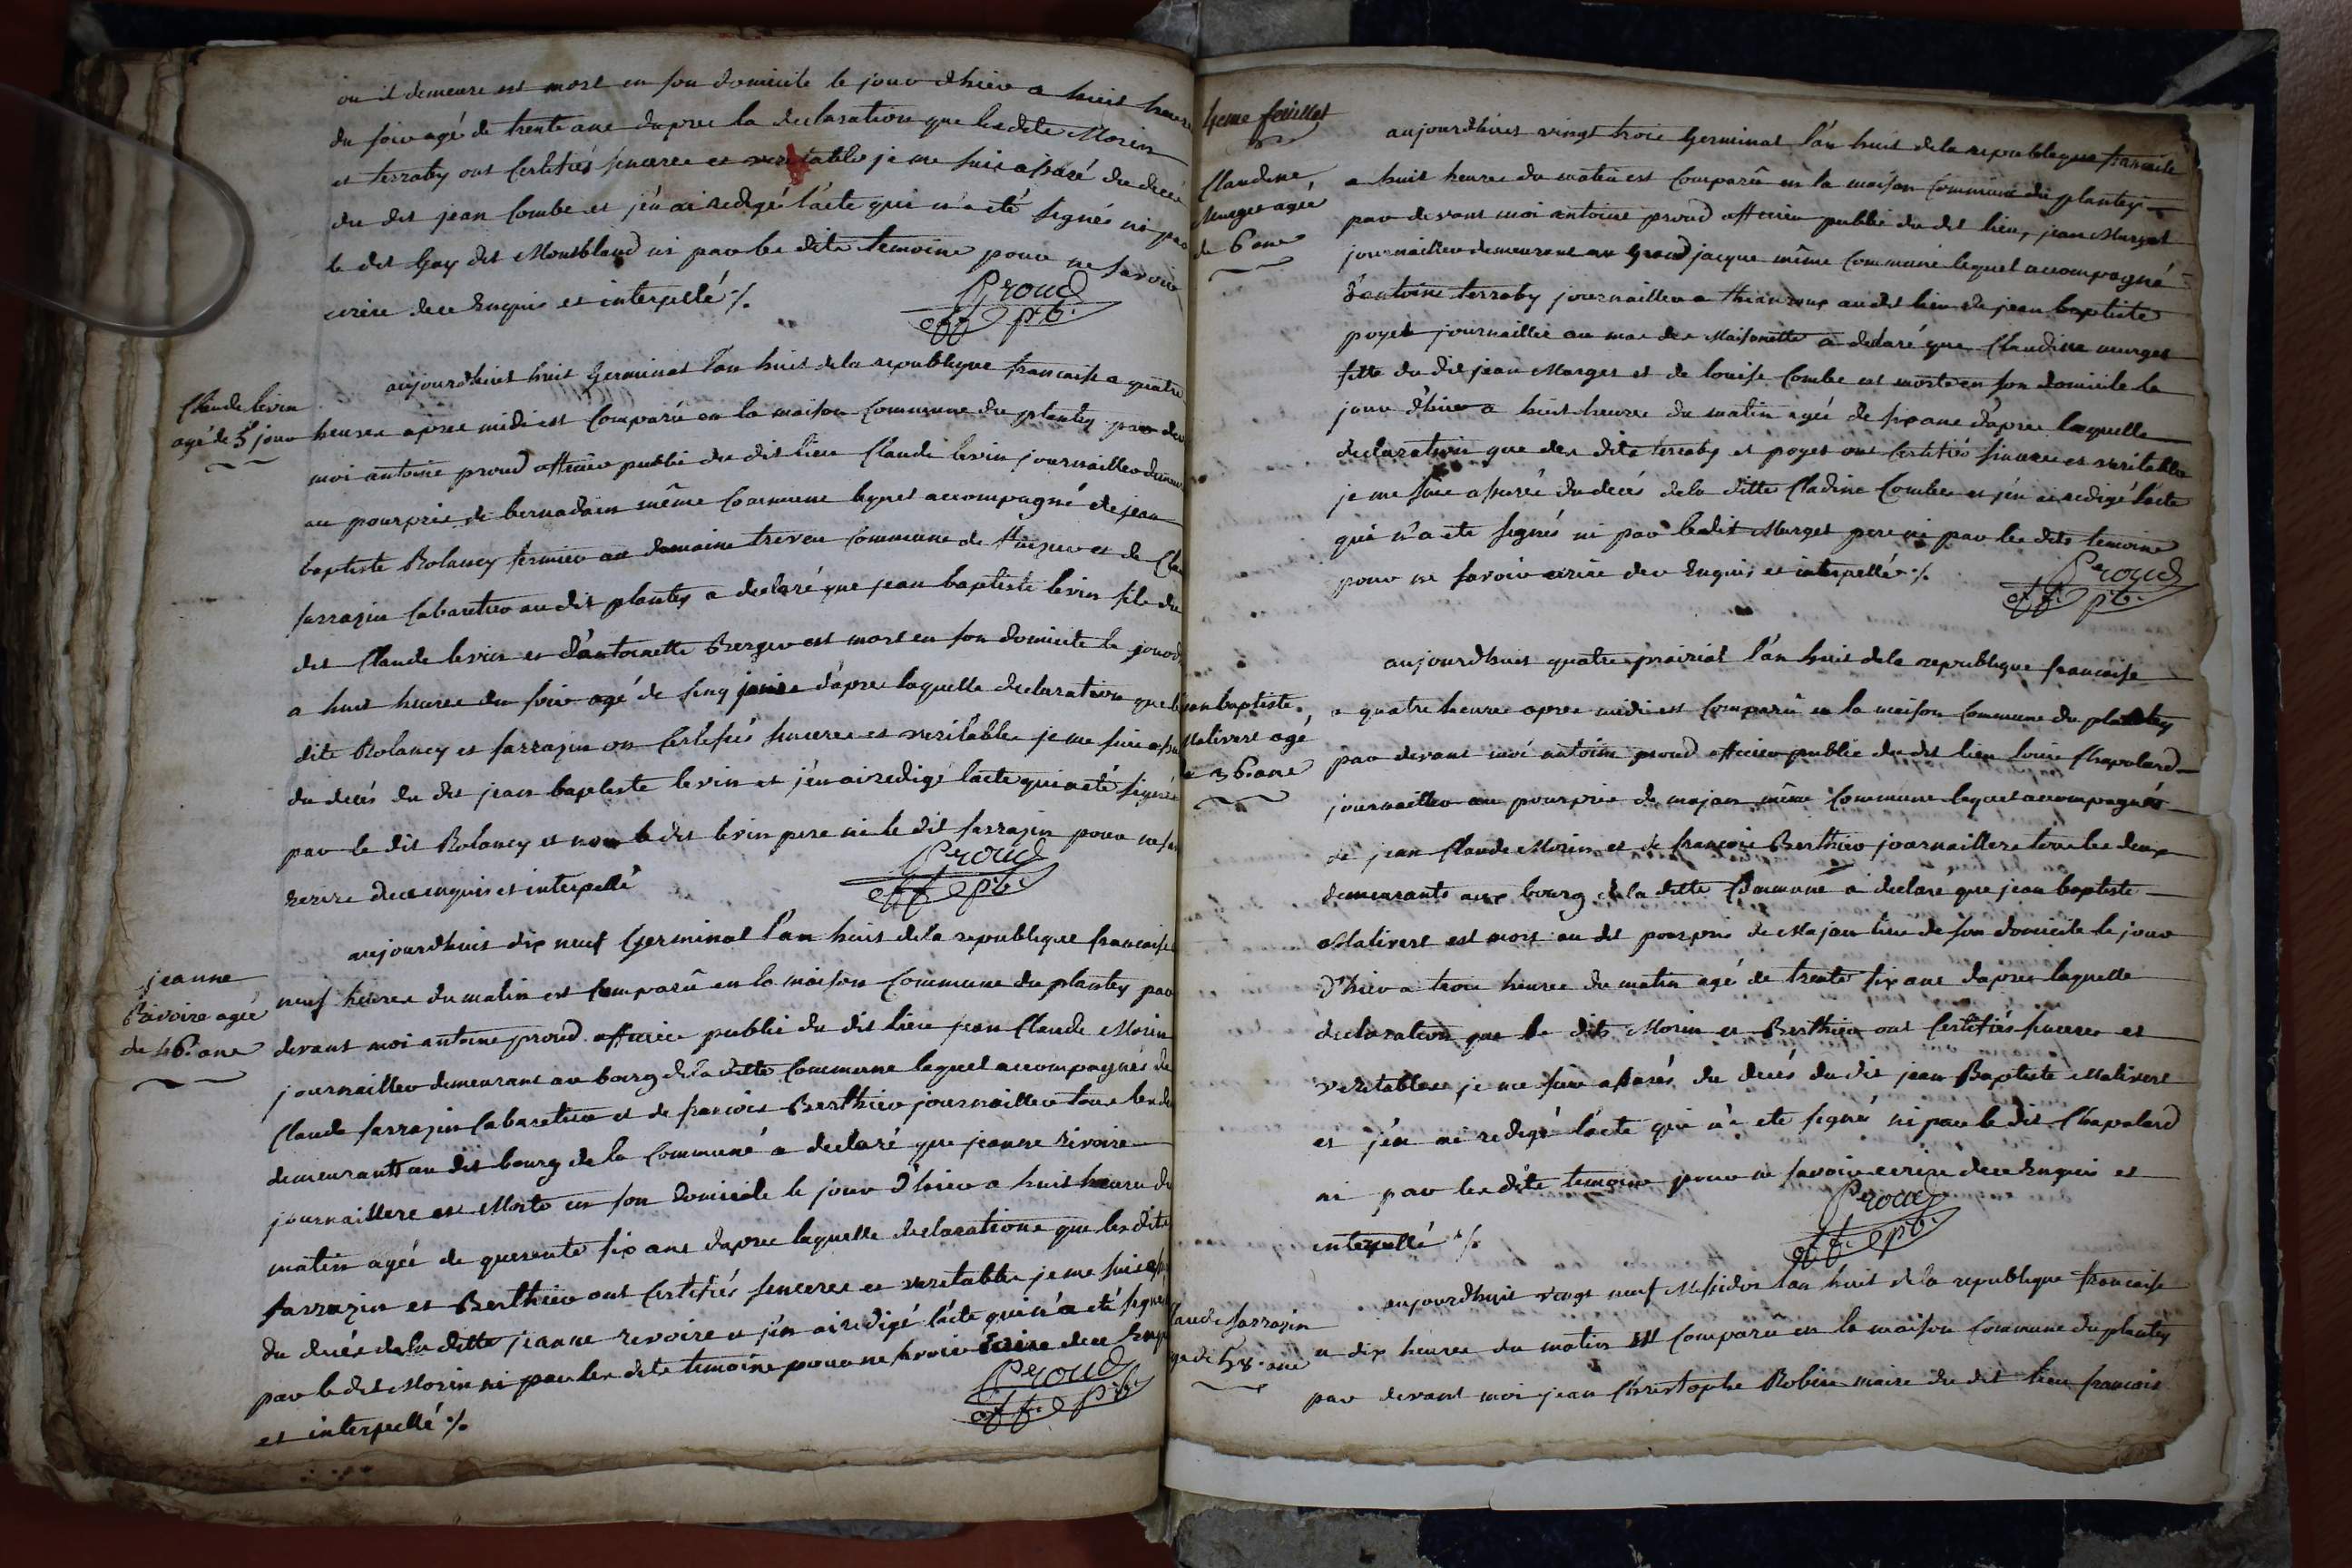 ou il demeure est mort en son domicile le jour d'hier a huit heures
du soir agé de trente ans dapres la declaration que lesdits Morin
et terraby ont Certifiés sincere et veritable je me suis assuré du decé
du dit jean Combe et j'en ai redigé l'acte qui n'a eté signés ni par
le dit Guy dit Montbland ni par les dits temoins pour ne savoir
ecrire de ce Enquis et interpellé ./.
Proud
off. pb.
Claude levin
agé de 5 jours
aujourdhuit huit Germinal l'an huit de la republique francaise a quatre
heures apres midi est Comparû en la maison Commune du plantey par dev
moi antoine proud officier public du dit lieu Claude levin journaillier demeur
au pourpris de bernadain même Commune lequel accompagné de jean
baptiste Rolancy fermier au domaine treveu Commune de et de Cla
sarrazin Cabaretier au dit plantey a declaré que jean baptiste levin fils du
dit Claude levin et d'antoinette Berger est mort en son domicile le jour d
a huit heures du soir agé de cinq jours d'apres laquelle declaration que l
dits Rolancy et sarrazin on Certifiés sinceres et veritables je me suis assu
du decés du dit jean baptiste levin et j'en ai redigé lacte qui a eté signés
par le dit Rolancy et non le dit levin pere ni le dit sarrazin pour ne sa
Ecrire de ce enquis et interpellé
Proud
off. pb.
jeanne
Rivoire agée
de 46 ans
aujourdhuit dix neuf Germinal l'an huit de la republique francaise
neuf heures du matin est Comparû en la maison Commune du plantey par
devant moi antoine proud officier public du dit lieu jean Claude Morin
journaillier demeurant au bourg de la ditte Commune lequel accompagnés de
Claude sarrazin Cabaretier et de francois Berthier journaillier tous les d
demeurants au dit bourg de la Commune a declaré que jeanne rivoire
journailliere est Morte en son domicile le jour d'hier a huit heures du
matin agée de quarente six ans dapres laquelle declarations que les dits
sarrazin et Berthier ont Certifiés sinceres et veritables je me suis ass
du decés de la ditte jeanne revoire et j'en ai redigé l'acte qui n'a eté signés
par le dit Morin ni par les dits temoins pour ne savoir Ecrire de ce Enqu
et interpellé ./.
Proud
off. pb.
4eme feuillet
Claudine
Murget agée
de 6 ans
aujourdhuit vingt trois Germinal l'an huit de la republique francaise
a huit heures du matin est Comparû en la maison Commune du plantey
par devant moi antoine proud officier public du dit lieu, jean Murget
journaillier demeurant au Grand jacque même Commune lequel accompagné
d'antoine terraby journaillier a au dit lieu de jean baptiste
poyet journaillier au mas des Maisonette a declaré que Claudine murget
fille du dit jean Murget et de louise Combe est morte en son domicile le
jour d'hier a huit heures du matin agée de six ans d'apres laquelle
declaration que des dits terraby et poyet ont Certifiés sinceres et veritables
je me suis assurée du decés de la ditte Cladine Combe et j'en ai redigé l'acte
qui n'a ete signés ni par ledit Murget pere ni par les dits temoins
pour ne savoir ecrire de ce Enquis et interpellé ./.
Proud
off. pb.
jean baptiste
Malivert agé
de 36 ans
aujourdhuit quatre prairial l'an huit de la republique francaise
a quatre heures apres midi est Comparû en la maison Commune du plantey
par devant moi antoine proud officier public du dit lieu louis Chapolard
journaillier au pourpris de majan même Commune lequel accompagnés
de jean Claude Morin et de francois Berthier journailliers tous les deux
demeurants aux bourg de la ditte Commune a declare que jean baptiste
Malivert est mort au dit pourpris de Majan lieu de son domicile le jour
d'hier a trois heures du matin agé de trente six ans dapres laquelle
declaration que le dits Morin et Berthier ont Certifiés sinceres et
veritables je me suis assurés du decés du dit jean Baptiste Malivert
et j'en ai redigé l'acte qui n'a ete signé ni par le dit Chapolard
ni par les dits temoins pour ne savoir ecrire de ce Enquis et
interpellé ./.
Proud
off. pb.
Claude sarrazin
agé de 58 ans
aujourdhuit vingt neuf Messidor l'an huit de la republique francaise
a dix heures du matin est Comparû en la maison Commune du plantey
par devant moi jean Christophe Robin maire du dit lieu francois